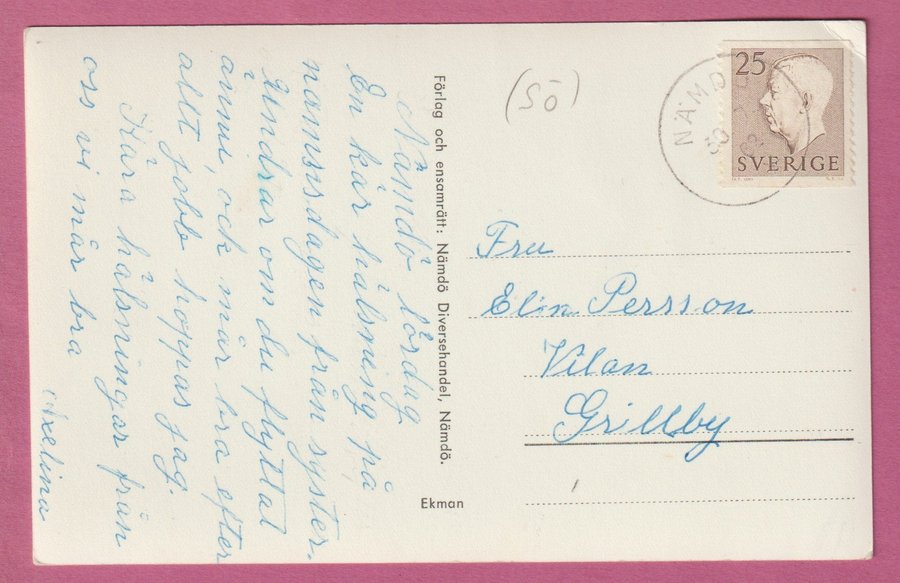 Nämdö lördag
En kär hälsning på
namnsdagen från syster.
Undrar om du flyttat
ännu, och mår bra efter
allt jobb hoppas jag.
Kära hälsningar från
oss vi mår bra
Axelina
Förlag och ensamrätt: Nämdö Diversehandel, Nämdö.
Ekman
(SÖ)
NÄMD
30
25
SVERIGE
Fru
Elin Persson
Vilan
Grillby